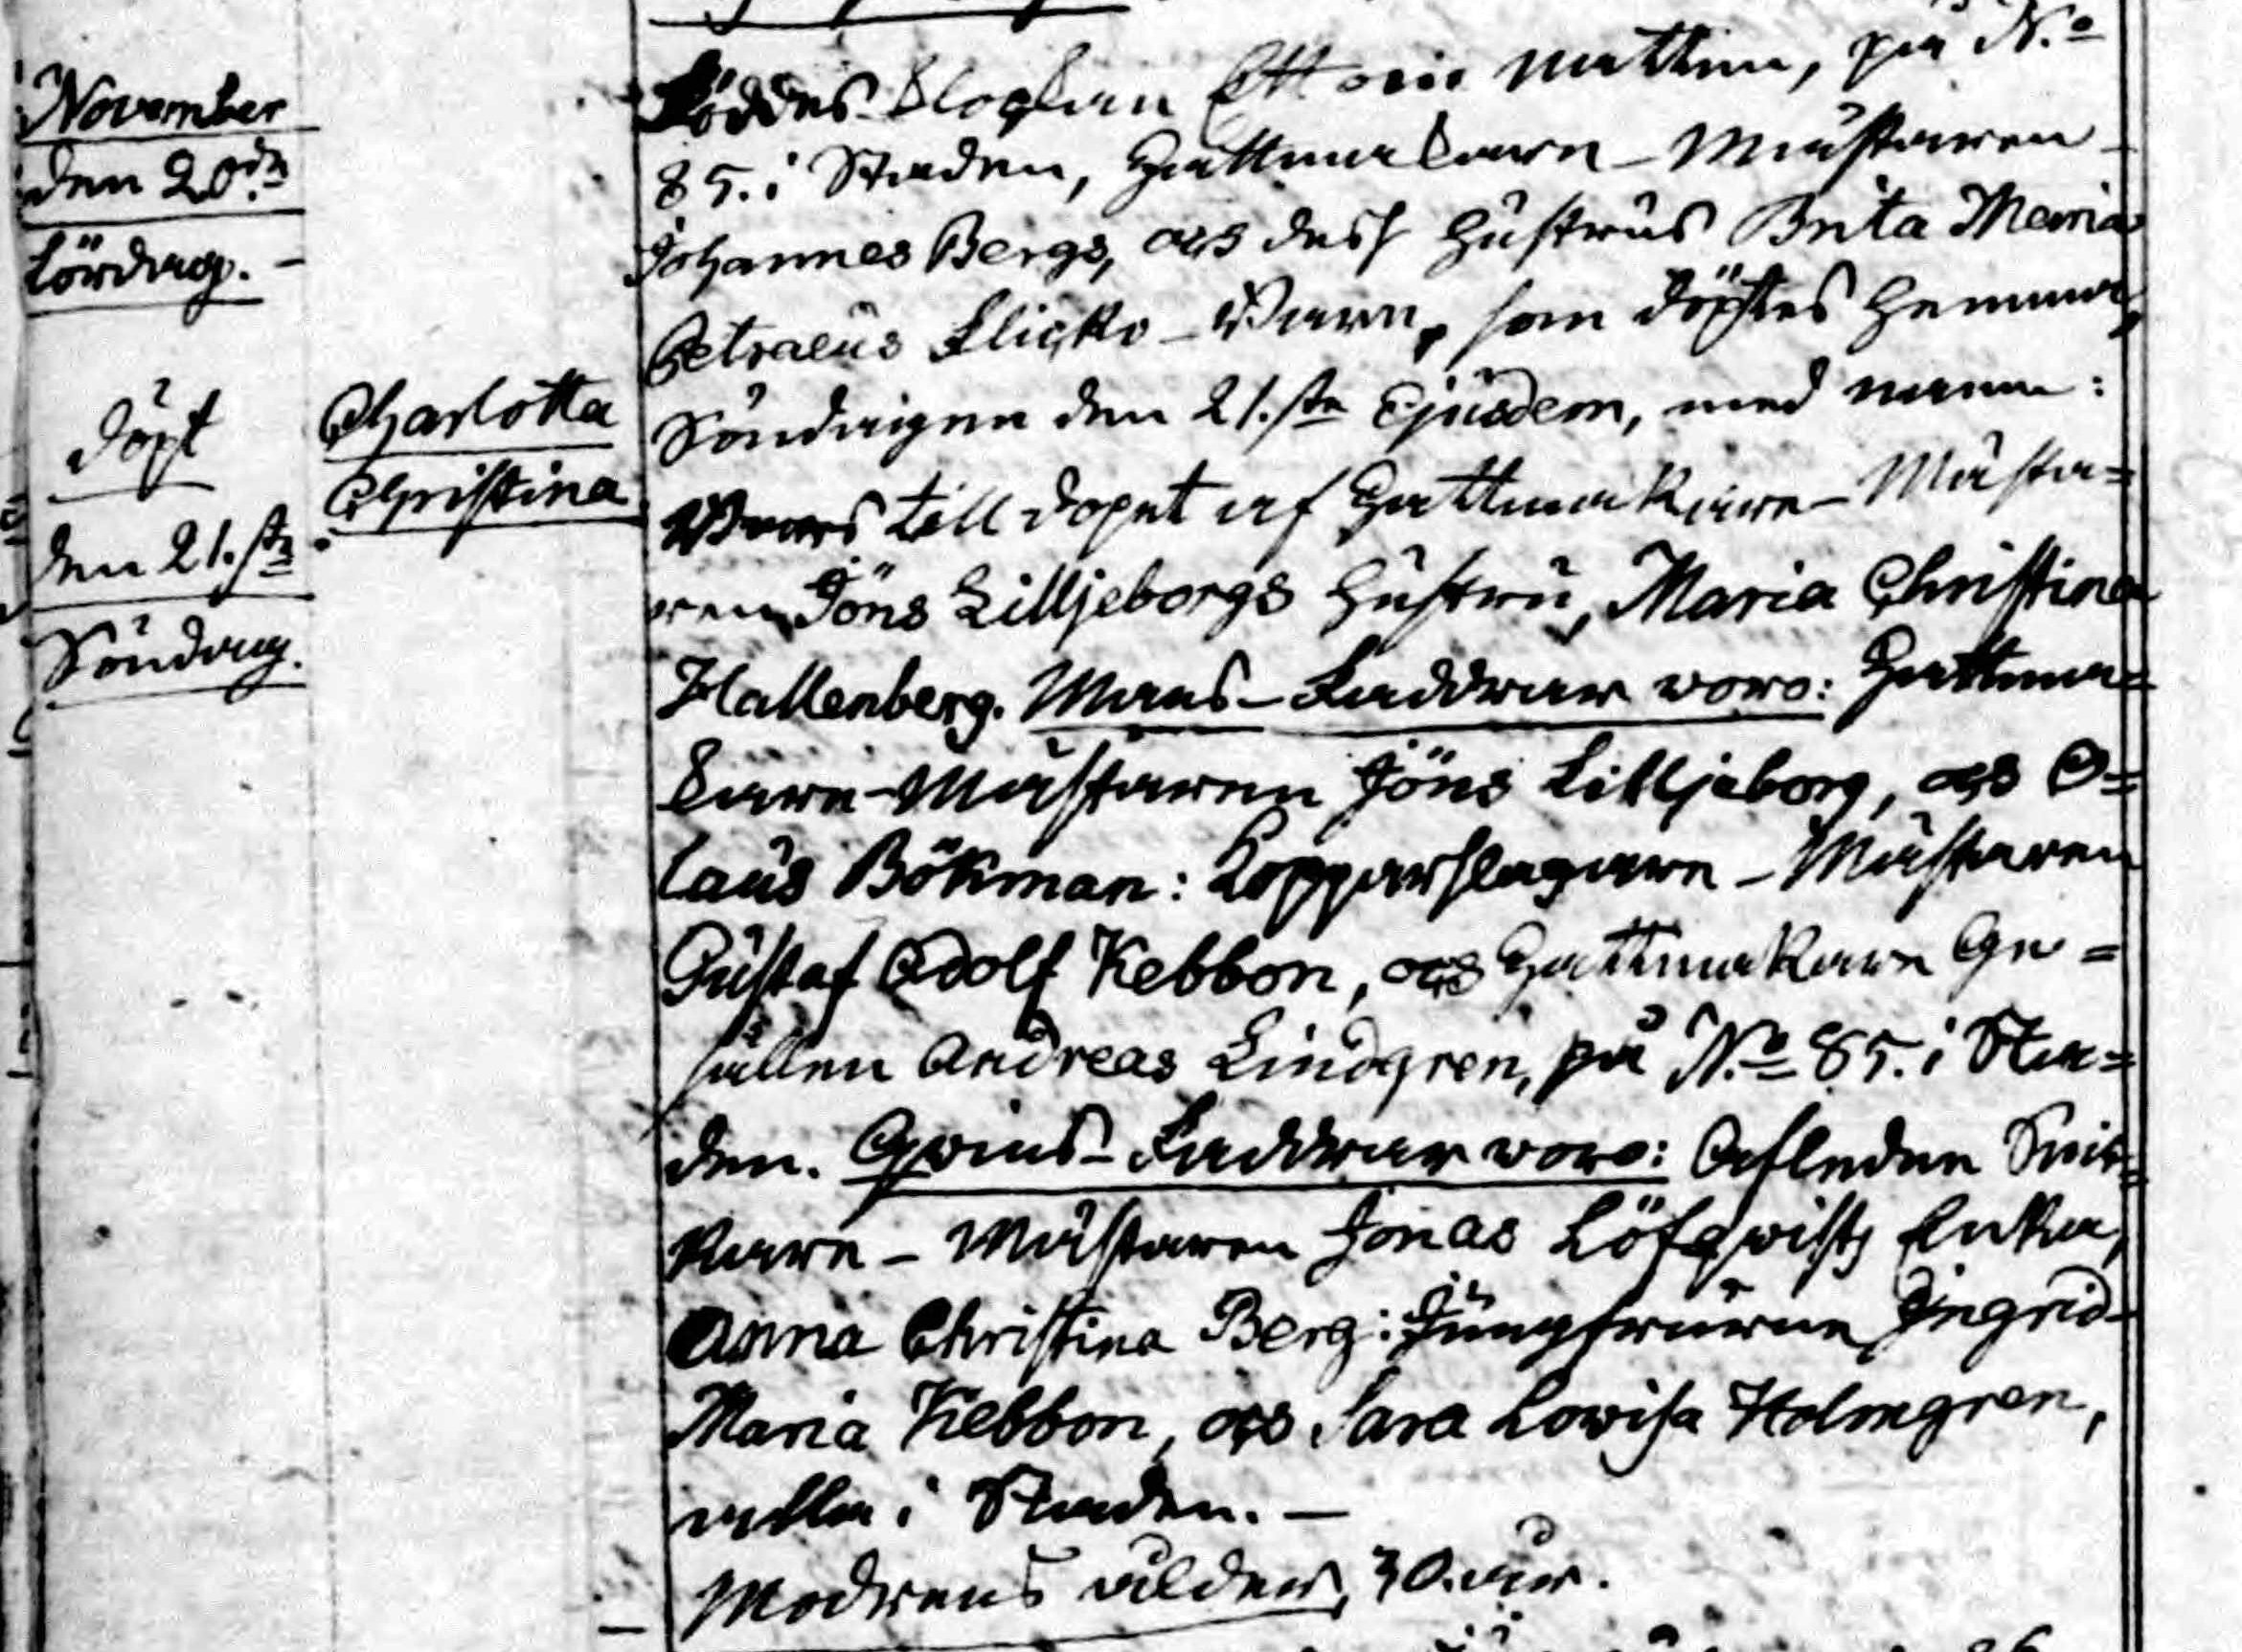 November
den 20de
Lördag. –
döpt
den 21.sta
Söndag.
Charlotta
Christina
Föddes Klockan Ett om natten, på N.o
85. i Staden, Hattmakare-Mästaren
Johannes Bergs, och dess Hustrus Brita Maria
Petraeus Flicko-Barn, som döptes hemma,
Söndagen den 21.sta Ejusdem, med namn:
Bars till dopet af Hattmakare-Mästa=
ren Jöns Lilljeborgs Hustru, Maria Christina
Hallenberg. Mans-Faddrar woro: Hattma=
kare-Mästaren Jöns Lilljeborg, och O=
laus Bökman: Kopparslagare-Mästaren
Gustaf Adolf Kebbon, och Hattmakare Ge=
sällen Andreas Lindgren, på N.o 85. i Sta=
den. Qwins-Faddrar woro: Afledne
kare-Mästaren Jonas Löfqwists Enka,
Anna Christina Berg: Jungfrurne Ingrid
Maria Kebbon, och Sara Lowisa Holmgren,
alla i Staden. –
Modrens ålder, 30. år.